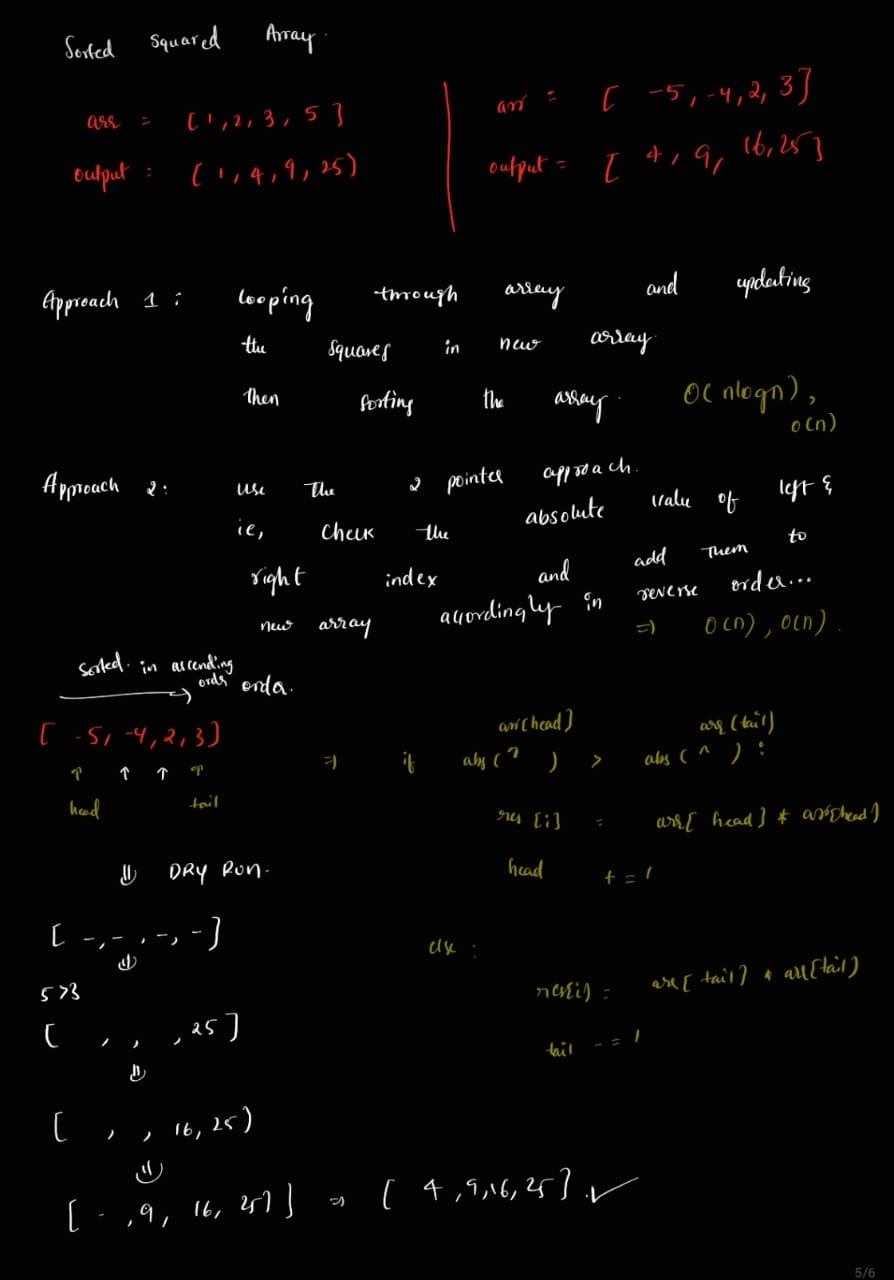 Sorted Squared Array.
arr = [1,2,3,5]
output = (1,4,9,25)
arr = [ -5,-4,2,3]
output = [ 4, 9, 16,25]
Approach 1: looping through array and updating
the squares in new array.
then sorting the array. O(nlogn),
O(n)
Approach 2: use the 2 pointer approach.
ie, check the absolute value of left &
right index and add them to
new array accordingly in reverse order...
=> O(n), O(n).
sorted in ascending
order order.
[ -5, -4, 2, 3)
↑ ↑ ↑ ↑
head tail
arr[head] arr(tail)
=> if abs(^ ) > abs(^ ) :
res [i] = arr[ head] * arr[head]
head += 1
else :
res[i) = arr[ tail] * arr[tail)
tail -= 1
⇓ DRY RUN.
[ -,- , -, -]
⇓
5>3
[ , , ,25]
⇓
[ , , 16, 25)
⇓
[ - ,9, 16, 25] => [ 4,9,16,25]. ✓
5/6